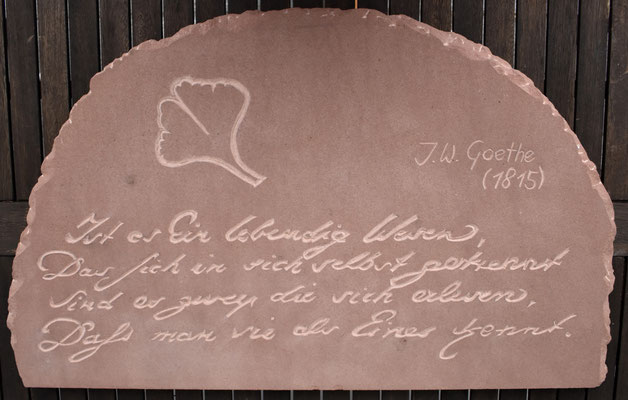 J.W. Goethe
(1815)
Ist es Ein lebendig Wesen,
Das sich in sich selbst getrennt
Sind es zwey die sich erlesen,
Daſs man sie als Eines kennt.